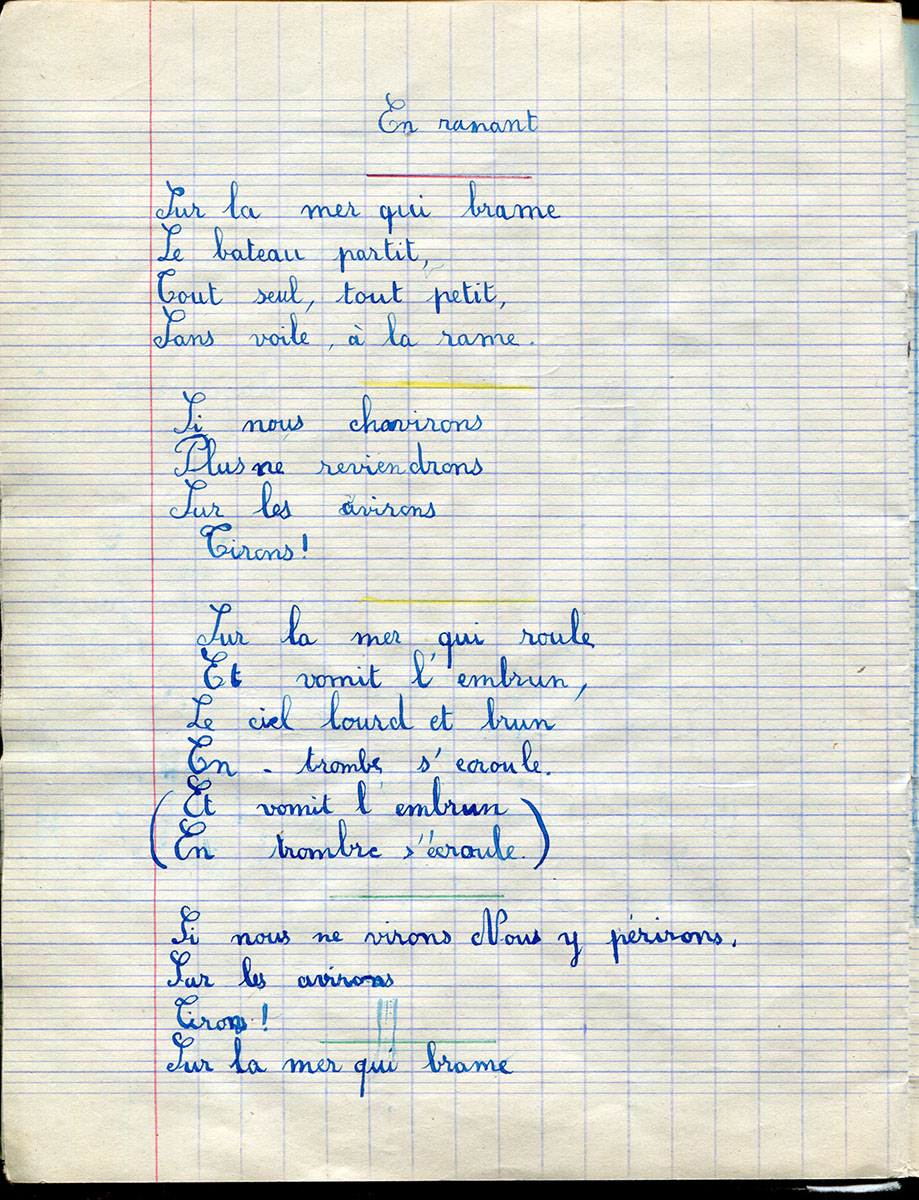 En ramant
Sur la mer qui brame
Le bateau partit,
Tout seul, tout petit,
Sans voile, à la rame.
Si nous chavirons
Plus ne reviendrons
Sur les avirons
Tirons!
Sur la mer qui roule
Et vomit l'embrun,
Le ciel lourd et brun
En - trombe s'ecroule.
(Et vomit l'embrun
En trombre s'écroule.)
Si nous ne virons Nous y périrons.
Sur les avirons
Tirons!
Sur la mer qui brame